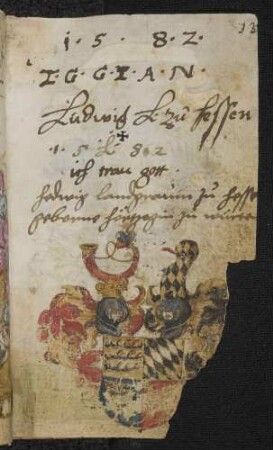 13
1 · 5 · 8 · 2 ·
I · G · G · I · A · N ·
Ludwig L. zu Hessen
1 · 5 8 2
ich trau gott
hedwig landgravin zu hess
geborne hertzogin zu wurte